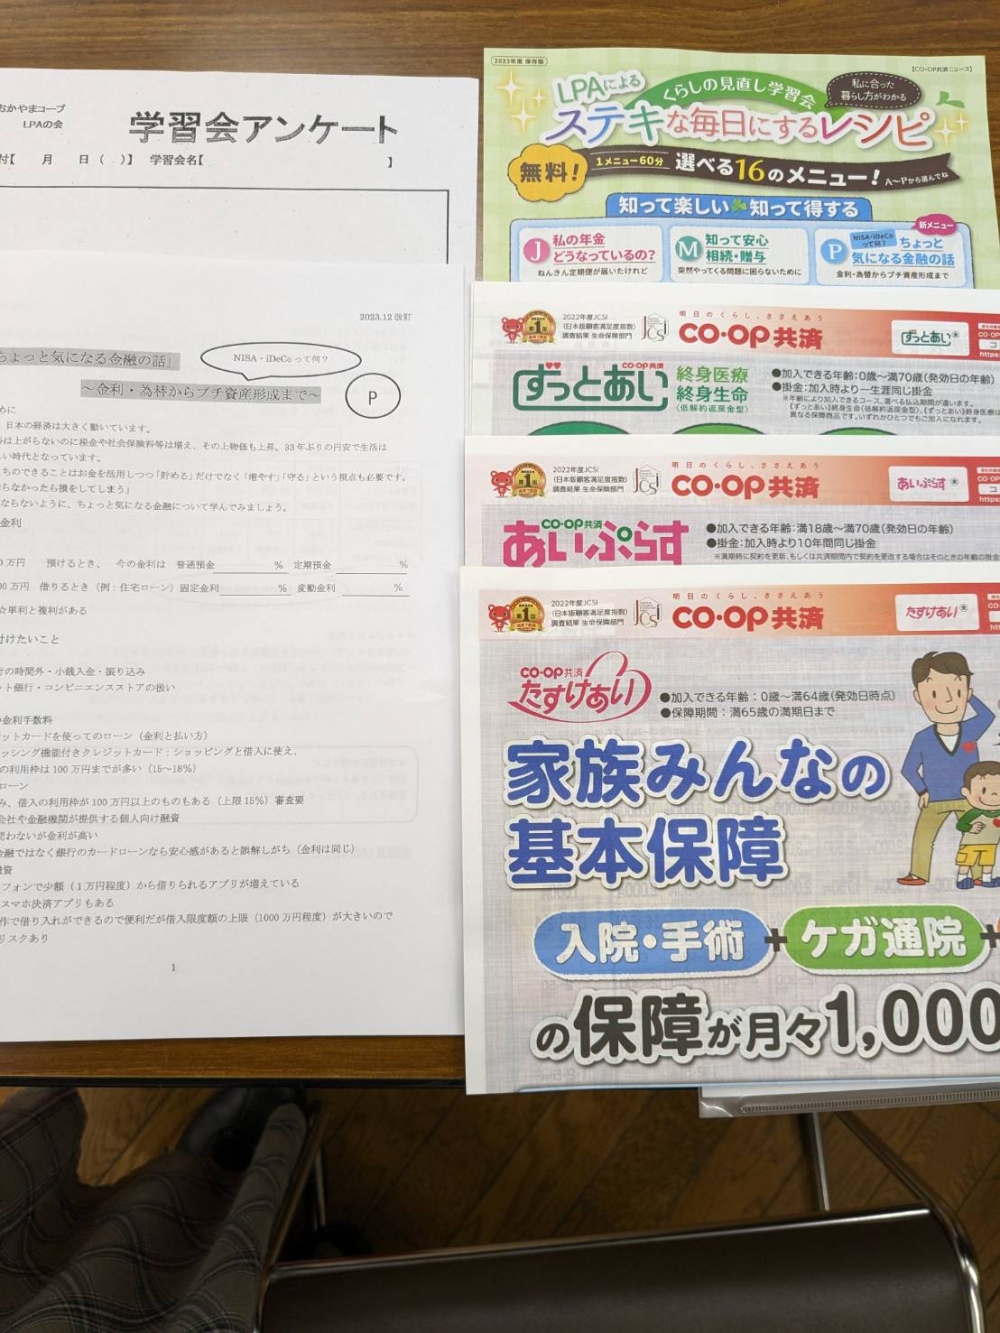 おかやまコープ
LPAの会
学習会アンケート
付【 月 日( )】 学習会名【 】
2023.12 改訂
ちょっと気になる金融の話」
NISA・iDeCoって何?
～金利・為替からプチ資産形成まで～
P
めに
、日本の経済は大きく動いています。
料は上がらないのに税金や社会保険料等は増え、その上物価も上昇。33年ぶりの円安で生活は
しい時代となっています。
たちのできることはお金を活用しつつ「貯める」だけでなく「増やす」「守る」という視点も必要です。
知らなかったら損をしてしまう」
ならないように、ちょっと気になる金融について学んでみましょう。
金利
0万円 預けるとき、 今の金利は 普通預金 % 定期預金 %
00万円 借りるとき(例:住宅ローン) 固定金利 % 変動金利 %
☆単利と複利がある
付けたいこと
行の時間外・小銭入金・振り込み
ット銀行・コンビニエンスストアの扱い
や金利手数料
ジットカードを使ってのローン(金利と払い方)
ッシング機能付きクレジットカード:ショッピングと借入に使え、
の利用枠は100万円までが多い(15～18%)
ローン
み、借入の利用枠が100万円以上のものもある(上限15%)審査要
会社や金融機関が提供する個人向け融資
問わないが金利が高い
金融ではなく銀行のカードローンなら安心感があると誤解しがち(金利は同じ)
融資
フォンで少額(1万円程度)から借りられるアプリが増えている
スマホ決済アプリもある
作で借り入れができるので便利だが借入限度額の上限(1000万円程度)が大きいので
リスクあり
1
2023年度 保存版
【CO・OP共済ニュース】
LPAによる
くらしの見直し学習会
私に合った
暮らし方がわかる
ステキな毎日にするレシピ
無料!
1メニュー60分 選べる16のメニュー! A～Pから選んでね
知って楽しい 知って得する
J 私の年金
どうなっているの?
ねんきん定期便が届いたけれど
M 知って安心
相続・贈与
突然やってくる問題に困らないために
新メニュー
P NISA・iDeCo
って何? ちょっと
気になる金融の話
金利・為替からプチ資産形成まで
第1位
2022年度JCSI
(日本版顧客満足度指数)
調査結果 生命保険部門
JCSI
明日のくらし、ささえあう
CO・OP共済
ずっとあい
https
CO・OP共済
ずっとあい 終身医療
終身生命
〈低解約返戻金型〉
●加入できる年齢:0歳～満70歳(発効日の年齢)
●掛金:加入時より一生涯同じ掛金
※年齢により加入できるコース、選べる払込期間が違います。
《ずっとあい》終身生命(低解約返戻金型)、《ずっとあい》終身医療は
異なる保障商品です。いずれかひとつでもご加入になれます。
第1位
2022年度JCSI
(日本版顧客満足度指数)
調査結果 生命保険部門
JCSI
明日のくらし、ささえあう
CO・OP共済
あいぷらす
https
CO・OP共済
あいぷらす
●加入できる年齢:満18歳～満70歳(発効日の年齢)
●掛金:加入時より10年間同じ掛金
※満期時に契約を更新、もしくは共済期間内で契約を変更する場合はそのときの年齢の掛金
第1位
2022年度JCSI
(日本版顧客満足度指数)
調査結果 生命保険部門
JCSI
明日のくらし、ささえあう
CO・OP共済
たすけあい
CO・OP共済
たすけあい
●加入できる年齢:0歳～満64歳(発効日時点)
●保障期間:満65歳の満期日まで
家族みんなの
基本保障
入院・手術+ケガ通院+
の保障が月々1,000